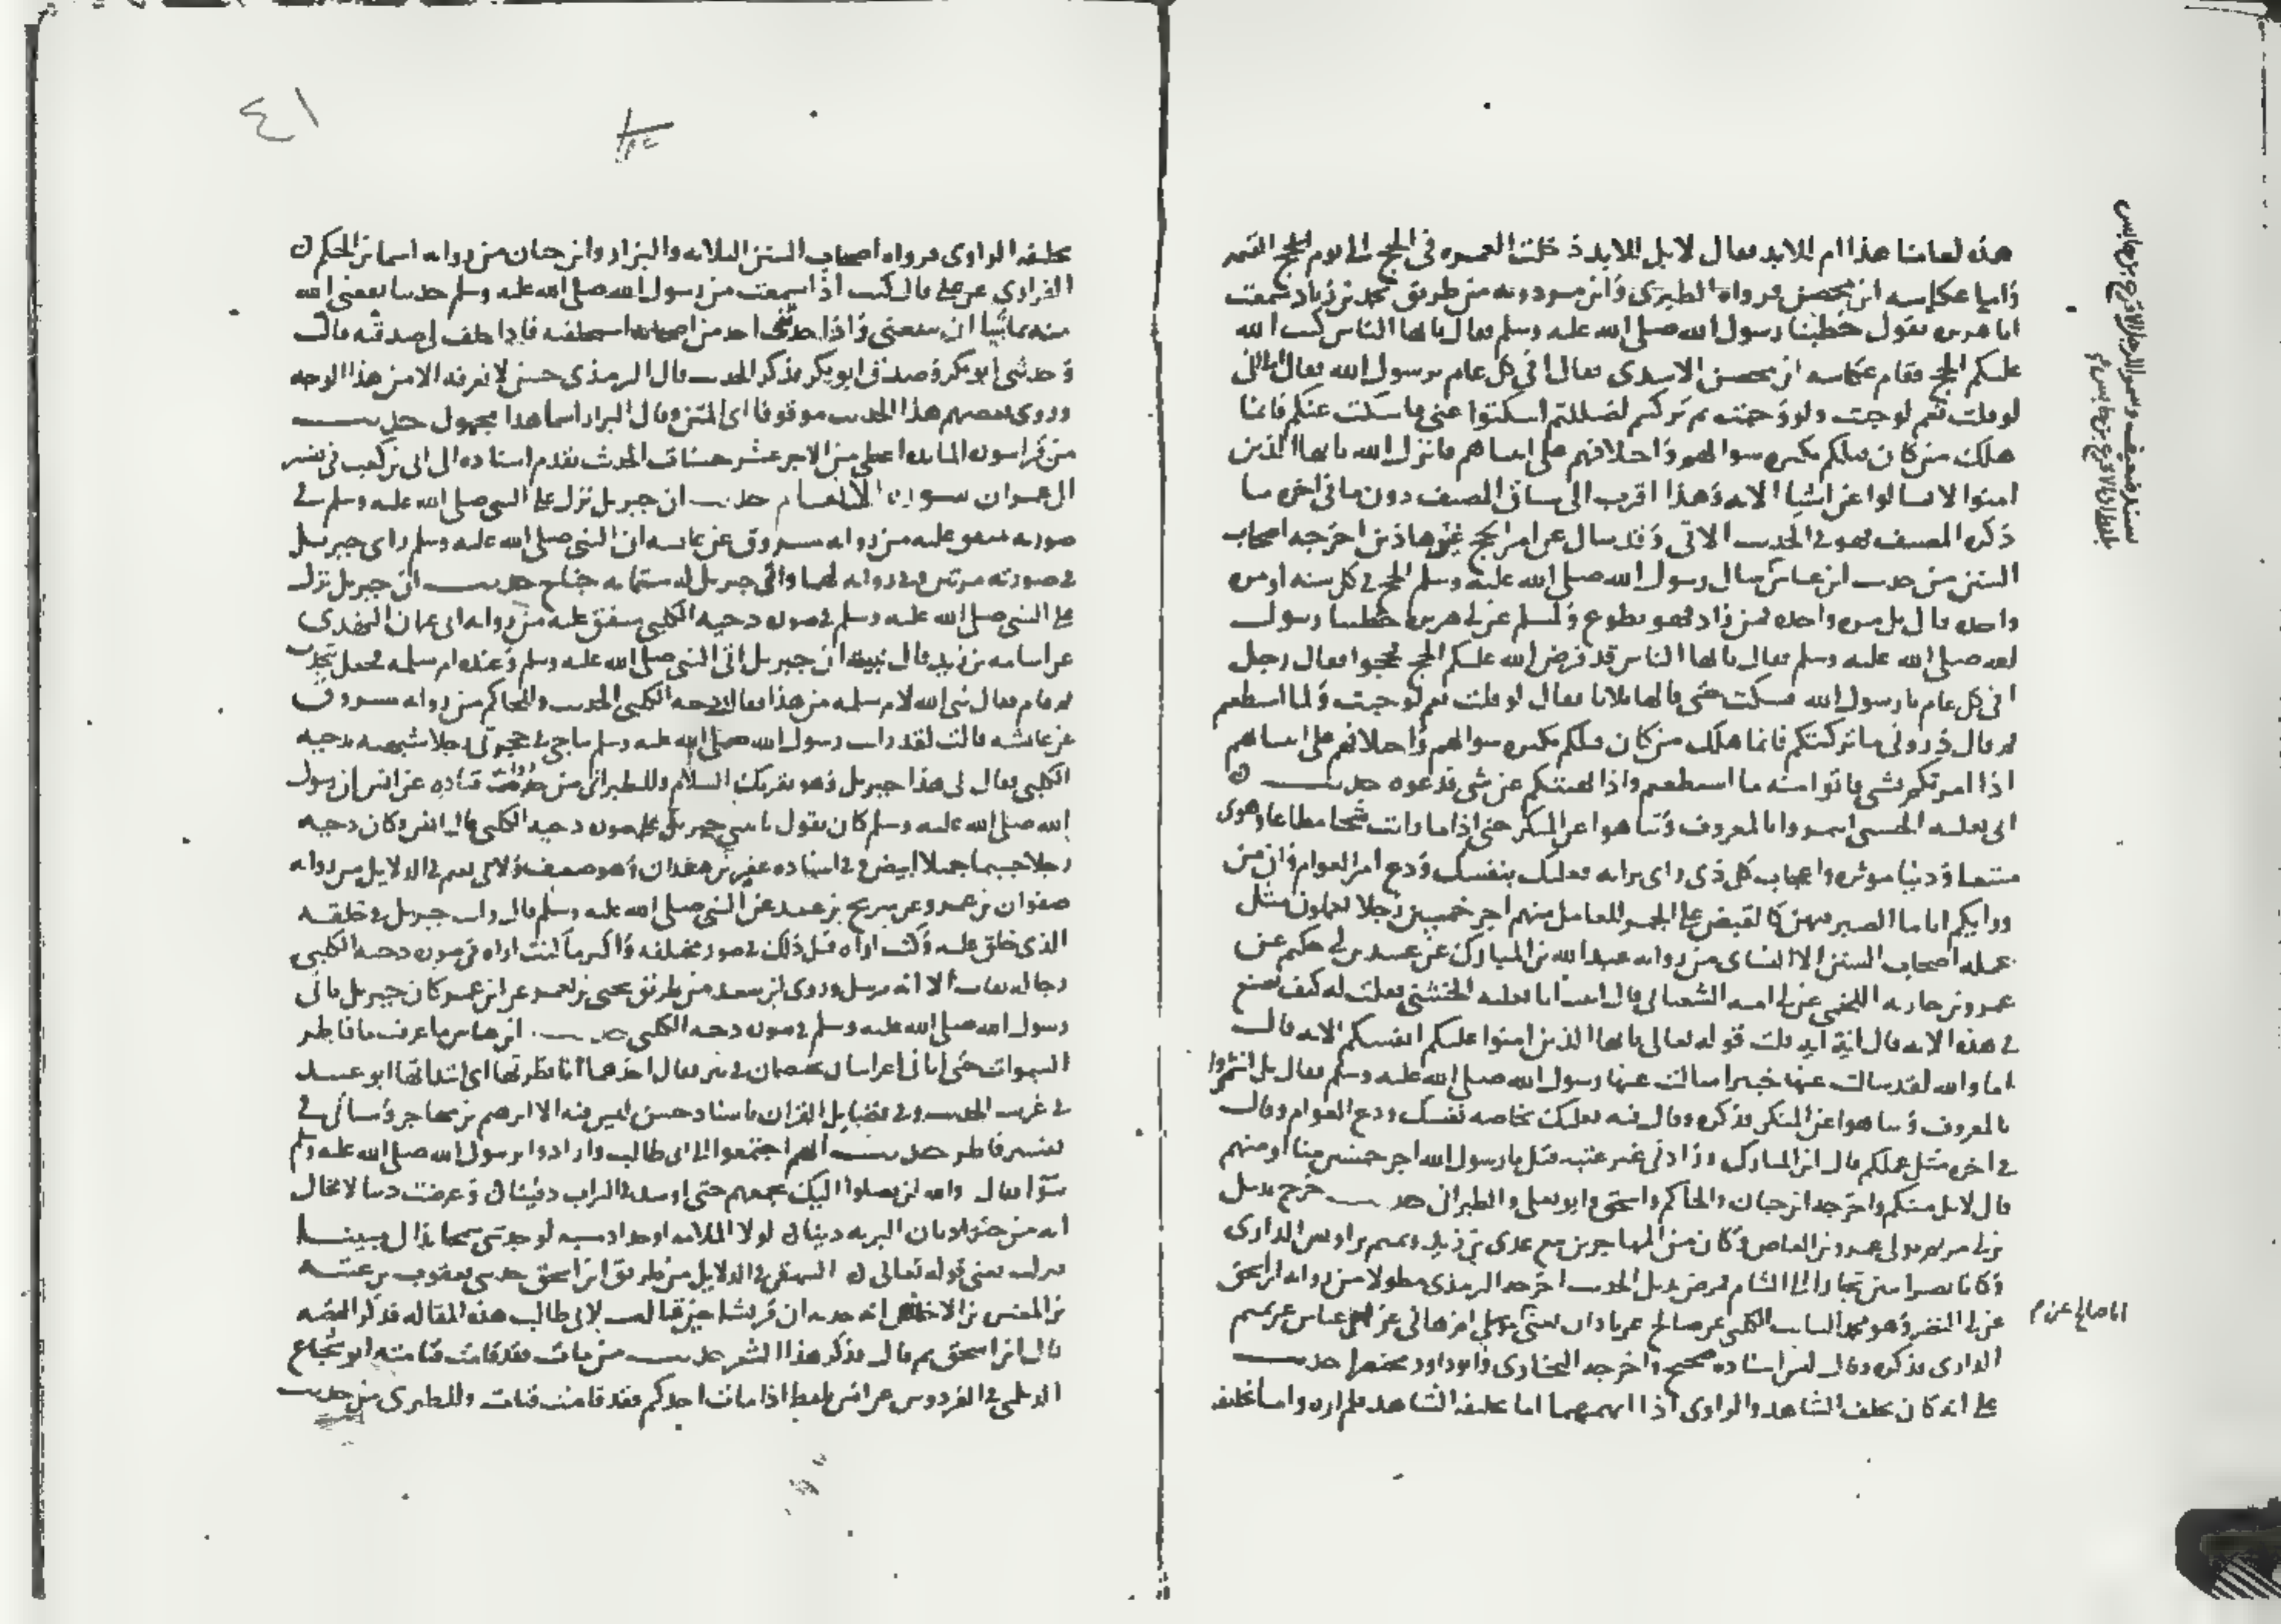 هذه لعامنا هذا ام للابد فقال لا بل للابد دخلت العمرة في الحج الى يوم القيمة
واما عكاشه ابن محصن فرواه الطبري وابن مردويه من طريق محمد بن زياد سمعت
ابا هريره يقول خطبنا رسول الله صلى الله عليه وسلم فقال يا ايها الناس كتب الله
عليكم الحج فقام عكاشه ابن محصن الاسدي فقال افي كل عام يرسول الله فقال اما اني
لو قلت نعم لوجبت ولو وجبت ثم تركتم لضللتم اسكتوا عني ما سكت عنكم فانما
هلك من كان قبلكم بكثره سوالهم واختلافهم على انبياهم فانزل الله يا ايها الذين
امنوا لا تسالوا عن اشيا الايه وهذا اقرب الى سياق المصنف دون ما في اخره ما
ذكره المصنف فهو في الحديث الاتي وقد سال عن امر الحج غيرهما ذين اخرجه اصحاب
السنن من حديث ابن عباس سال رسول الله صلى الله عليه وسلم الحج في كل سنه او مره
واحده قال بل مره واحده فمن زاد فهو تطوع ولمسلم عن ابي هريره خطبنا رسول
الله صلى الله عليه وسلم فقال يا ايها الناس قد فرض الله عليكم الحج فحجوا فقال رجل
افي كل عام يا رسول الله فسكت حتى قالها ثلاثا فقال لو قلت نعم لوجبت ولما استطعتم
ثم قال ذروني ما تركتكم فانما هلك من كان قبلكم بكثره سوالهم واختلافهم على انبياهم
اذا امرتكم بشي فاتوا منه ما استطعتم واذا نهيتكم عن شي فدعوه حديث
ابي ثعلبه الخشني ايتمروا بالمعروف وتناهوا عن المنكر حتى اذا ما رايت شحا مطاعا وهوى
متبعا ودنيا موثره واعجاب كل ذي راي برايه فعليك بنفسك ودع امر العوام وان من
ورايكم اياما الصبر فيهن كالقبض على الجمر للعامل منهم اجر خمسين رجلا يعملون مثل
عمله اصحاب السنن الا النساى من روايه عبد الله بن المبارك عن عتبه بن ابي حكيم عن
عمرو بن جاريه اللخمي عن ابي اميه الشعباني قال اتيت ابا ثعلبه الخشني فقلت له كيف تصنع
في هذه الايه قال اية ايه قلت قوله تعالى يا ايها الذين امنوا عليكم انفسكم الايه قال
اما والله لقد سالت عنها خبيرا سالت عنها رسول الله صلى الله عليه وسلم فقال بل ائتمروا
بالمعروف وتناهوا عن المنكر فذكره وقال فيه فعليك بخاصه نفسك ودع العوام وقال
في اخره مثل عملكم قال ابن المبارك وزادني غير عتبه قيل يا رسول الله اجر خمسين منا او منهم
قال لا بل منكم واخرجه ابن حبان والحاكم واسحق وابو يعلى والطبراني حديث خرج بديل
بن ابي مريم مولى عمرو بن العاص وكان من المهاجرين مع عدي بن زيد وتميم بن اوس الداري
وكانا نصرانيين تجارا الى الشام فمرض بديل الحديث اخرجه الترمذي مطولا من روايه ابن اسحق
عن ابي النضر وهو محمد بن السايب الكلبي عن صالح عن باذان يعني مولى ام هاني عن ابن عباس عن تميم
الداري فذكره وقال ليس اسناده صحيح واخرجه البخاري وابو داود مختصرا حديث
علي انه كان يحلف الشاهد والراوي اذا اتهمهما اما تحليف الشاهد فلم اره واما تحليفه
سنده ضعيف وسوال الرجل الاقرع بن حابس
ابا صالح عن م
٤١
تحليفه الراوي فرواه اصحاب السنن الثلاثه والبزار وابن حبان من روايه اسما بن الحكم
الفزاري عن علي قال كنت اذا سمعت من رسول الله صلى الله عليه وسلم حديثا نفعني الله
منه بما شا ان ينفعني واذا حدثني احد من اصحابه استحلفته فاذا حلف لي صدقته قال
وحدثني ابو بكر وصدق ابو بكر فذكر الحديث قال الترمذي حسن لا نعرفه الا من هذا الوجه
وروى بعضهم هذا الحديث موقوفا اي المتن وقال البزار اسما هذا مجهول حديث
من قرا سوره المايده اعطي من الاجر عشر حسنات الحديث تقدم اسناده الى ابي بن كعب في تفسير
ال عمران سوره الانعام حديث ان جبريل نزل على النبي صلى الله عليه وسلم في
صورته متفق عليه من روايه مسروق عن عائشه ان النبي صلى الله عليه وسلم راى جبريل
في صورته مرتين وفي روايه لهما رأى جبريل له ستمايه جناح حديث ان جبريل نزل
على النبي صلى الله عليه وسلم في صوره دحيه الكلبي متفق عليه من روايه ابي عثمان النهدي
عن اسامه بن زيد قال نبيت ان جبريل اتى النبي صلى الله عليه وسلم وعنده ام سلمه فجعل يتحدث
ثم قام فقال نبي الله لام سلمه من هذا فقالت دحيه الكلبي الحديث وللحاكم من روايه مسروق
عن عائشه قالت لقد رايت رسول الله صلى الله عليه وسلم يناجي في حجرتي رجلا شبهته بدحيه
الكلبي فقال لي هذا جبريل وهو يقريك السلام وللطبراني من روايه قتاده عن انس ان رسول
الله صلى الله عليه وسلم كان يقول ياتيني جبريل على صوره دحيه الكلبي قال انس وكان دحيه
رجلا جسيما جميلا ابيض وفي اسناده عفير بن معدان وهو ضعيف ولابي نعيم في الدلايل من روايه
صفوان بن عمرو عن شريح بن عبيد عن النبي صلى الله عليه وسلم قال رايت جبريل في خلقه
الذي خلق عليه وكنت اراه قبل ذلك في صور مختلفه واكثر ما كنت اراه في صوره دحيه الكلبي
رجاله ثقات الا انه مرسل وروى ابن سعد من طريق يحيى بن يعمر عن ابن عمر كان جبريل ياتي
رسول الله صلى الله عليه وسلم في صوره دحيه الكلبي حديث ابن عباس ما عرفت ما فاطر
السموات حتى اتاني اعرابيان يختصمان في بئر فقال احدهما انا فطرتها اي ابتداتها ابو عبيد
في غريب الحديث وفي فضايل القران باسناد حسن ليس فيه الا ابرهيم بن مهاجر وسياتي في
تفسير فاطر حديث انهم اجتمعوا الى ابي طالب وارادوا برسول الله صلى الله عليه وسلم
سوءا فقال والله لن يصلوا اليك بجمعهم حتى اوسد في التراب دفينا وعرضت دينا لا محال
انه من خير اديان البريه دينا لولا الملامه او حذار مسبه لوجدتني سمحا بذاك مبينا
فنزلت يعني قوله تعالى البيهقي في الدلايل من طريق ابن اسحق حدثني يعقوب بن عتبه
بن المغيره بن الاخنس انه حدث ان قريشا حين قالت لابي طالب هذه المقاله فذكر القصه
قال ابن اسحق ثم قال فذكر هذا الشعر حديث من مات فقد قامت قيامته ابو شجاع
الديلمي في الفردوس عن انس بلفظ اذا مات احدكم فقد قامت قيامته وللطبري من حديث